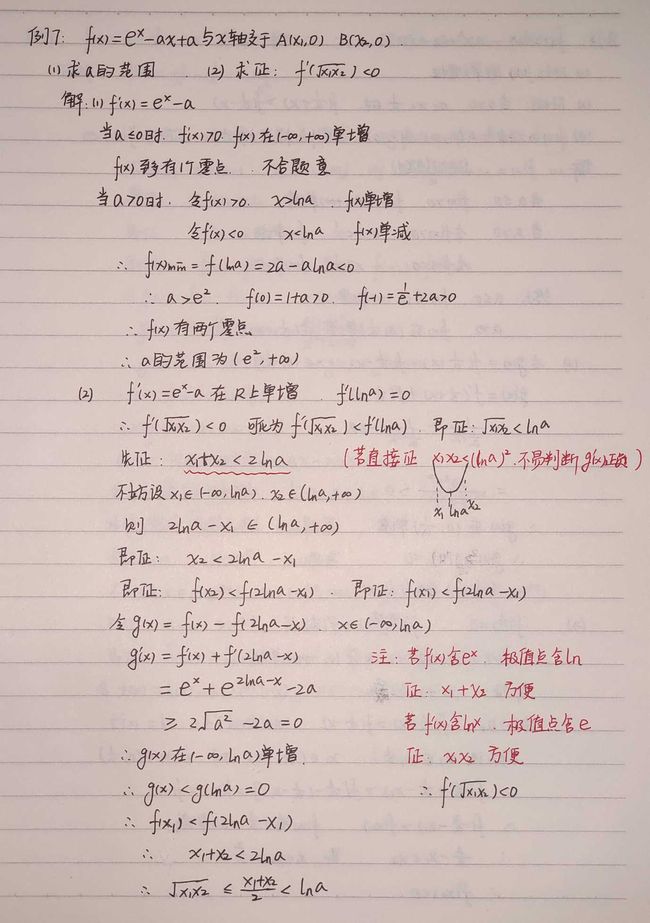 例7: f(x)=e^x-ax+a与x轴交于A(x₁,0) B(x₂,0).
(1) 求a的范围 (2) 求证: f'(√x₁x₂)<0
解:(1) f'(x)=e^x-a
当a≤0时. f'(x)>0 f(x)在(-∞,+∞)单增
f(x)至多有1个零点. 不合题意
当a>0时. 令f'(x)>0. x>lna. f(x)单增
令f'(x)<0 x<lna f(x)单减
∴ f(x)min=f(lna)=2a-alna<0
∴ a>e². f(0)=1+a>0. f(-1)=1/e+2a>0
∴ f(x)有两个零点
∴ a的范围为(e²,+∞)
(2) f'(x)=e^x-a在R上单增. f'(lna)=0
∴ f'(√x₁x₂)<0 可化为f'(√x₁x₂)<f'(lna). 即证:√x₁x₂<lna
先证: x₁+x₂<2lna (若直接证 x₁x₂<(lna)².不易判断g'(x)正负)
不妨设x₁∈(-∞,lna). x₂∈(lna,+∞)
x₁ lna x₂
则 2lna-x₁∈(lna,+∞)
即证: x₂<2lna-x₁
即证: f(x₂)<f(2lna-x₁). 即证: f(x₁)<f(2lna-x₁)
令g(x)=f(x)-f(2lna-x). x∈(-∞,lna)
g'(x)=f'(x)+f'(2lna-x)
=e^x+e^(2lna-x)-2a
≥2√a²-2a=0
∴g(x)在(-∞,lna)单增.
∴g(x)<g(lna)=0
∴ f(x₁)<f(2lna-x₁)
∴ x₁+x₂<2lna
∴ √x₁x₂≤(x₁+x₂)/2<lna
注: 若f(x)含e^x. 极值点含ln
证: x₁+x₂ 方便
若f(x)含lnx. 极值点含e
证: x₁x₂ 方便
∴f'(√x₁x₂)<0